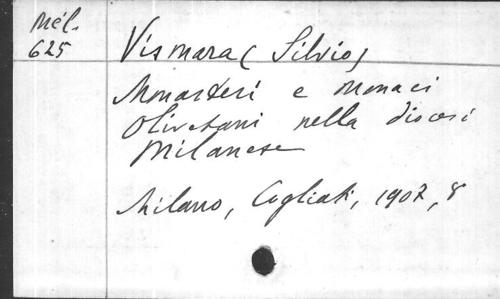 Mél.
625
Vismara (Silvio)
Monasteri e monaci
Olivetani nella diocesi
Milanese
Milano, Cogliati, 1907, 8